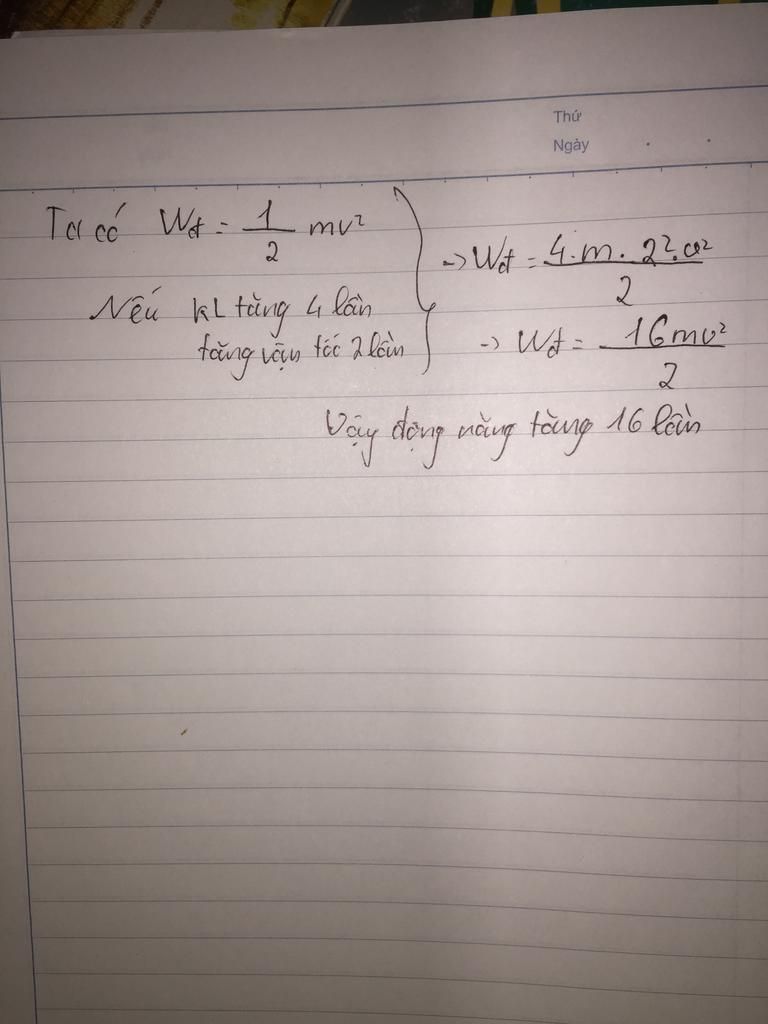 Thứ
Ngày
Ta có Wđ = 1/2 mv²
Nếu KL tăng 4 lần
tăng vận tốc 2 lần
-> Wđ = 4.m.2².v²/2
-> Wđ = 16mv²/2
Vậy động năng tăng 16 lần